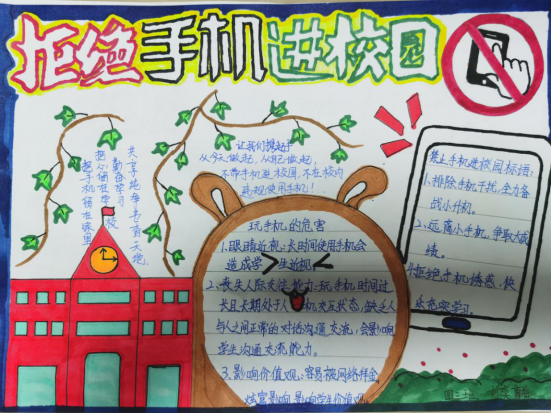 拒绝手机进校园
让我们携起手
从今天做起,从自己做起,
不带手机进校园,不在校内
违规使用手机!
共享起幸书香天地
勤奋学习
把心留在学校
把手机留在家里
玩手机的危害
1、眼睛近视:长时间使用手机会
造成学生近视
2、丧失人际交往能力:玩手机时间过
长且长期处于人机交互状态,缺乏人
与人之间正常的对话沟通交流,会影响
学生沟通交流能力。
3、影响价值观:容易被网络拜金
炫富影响 影响学生价值观
禁止手机进校园标语:
1、排除手机干扰,全力备
战小升机。
2、远离小手机,争取大成
绩。
拒绝手机诱惑,快
乐学习。